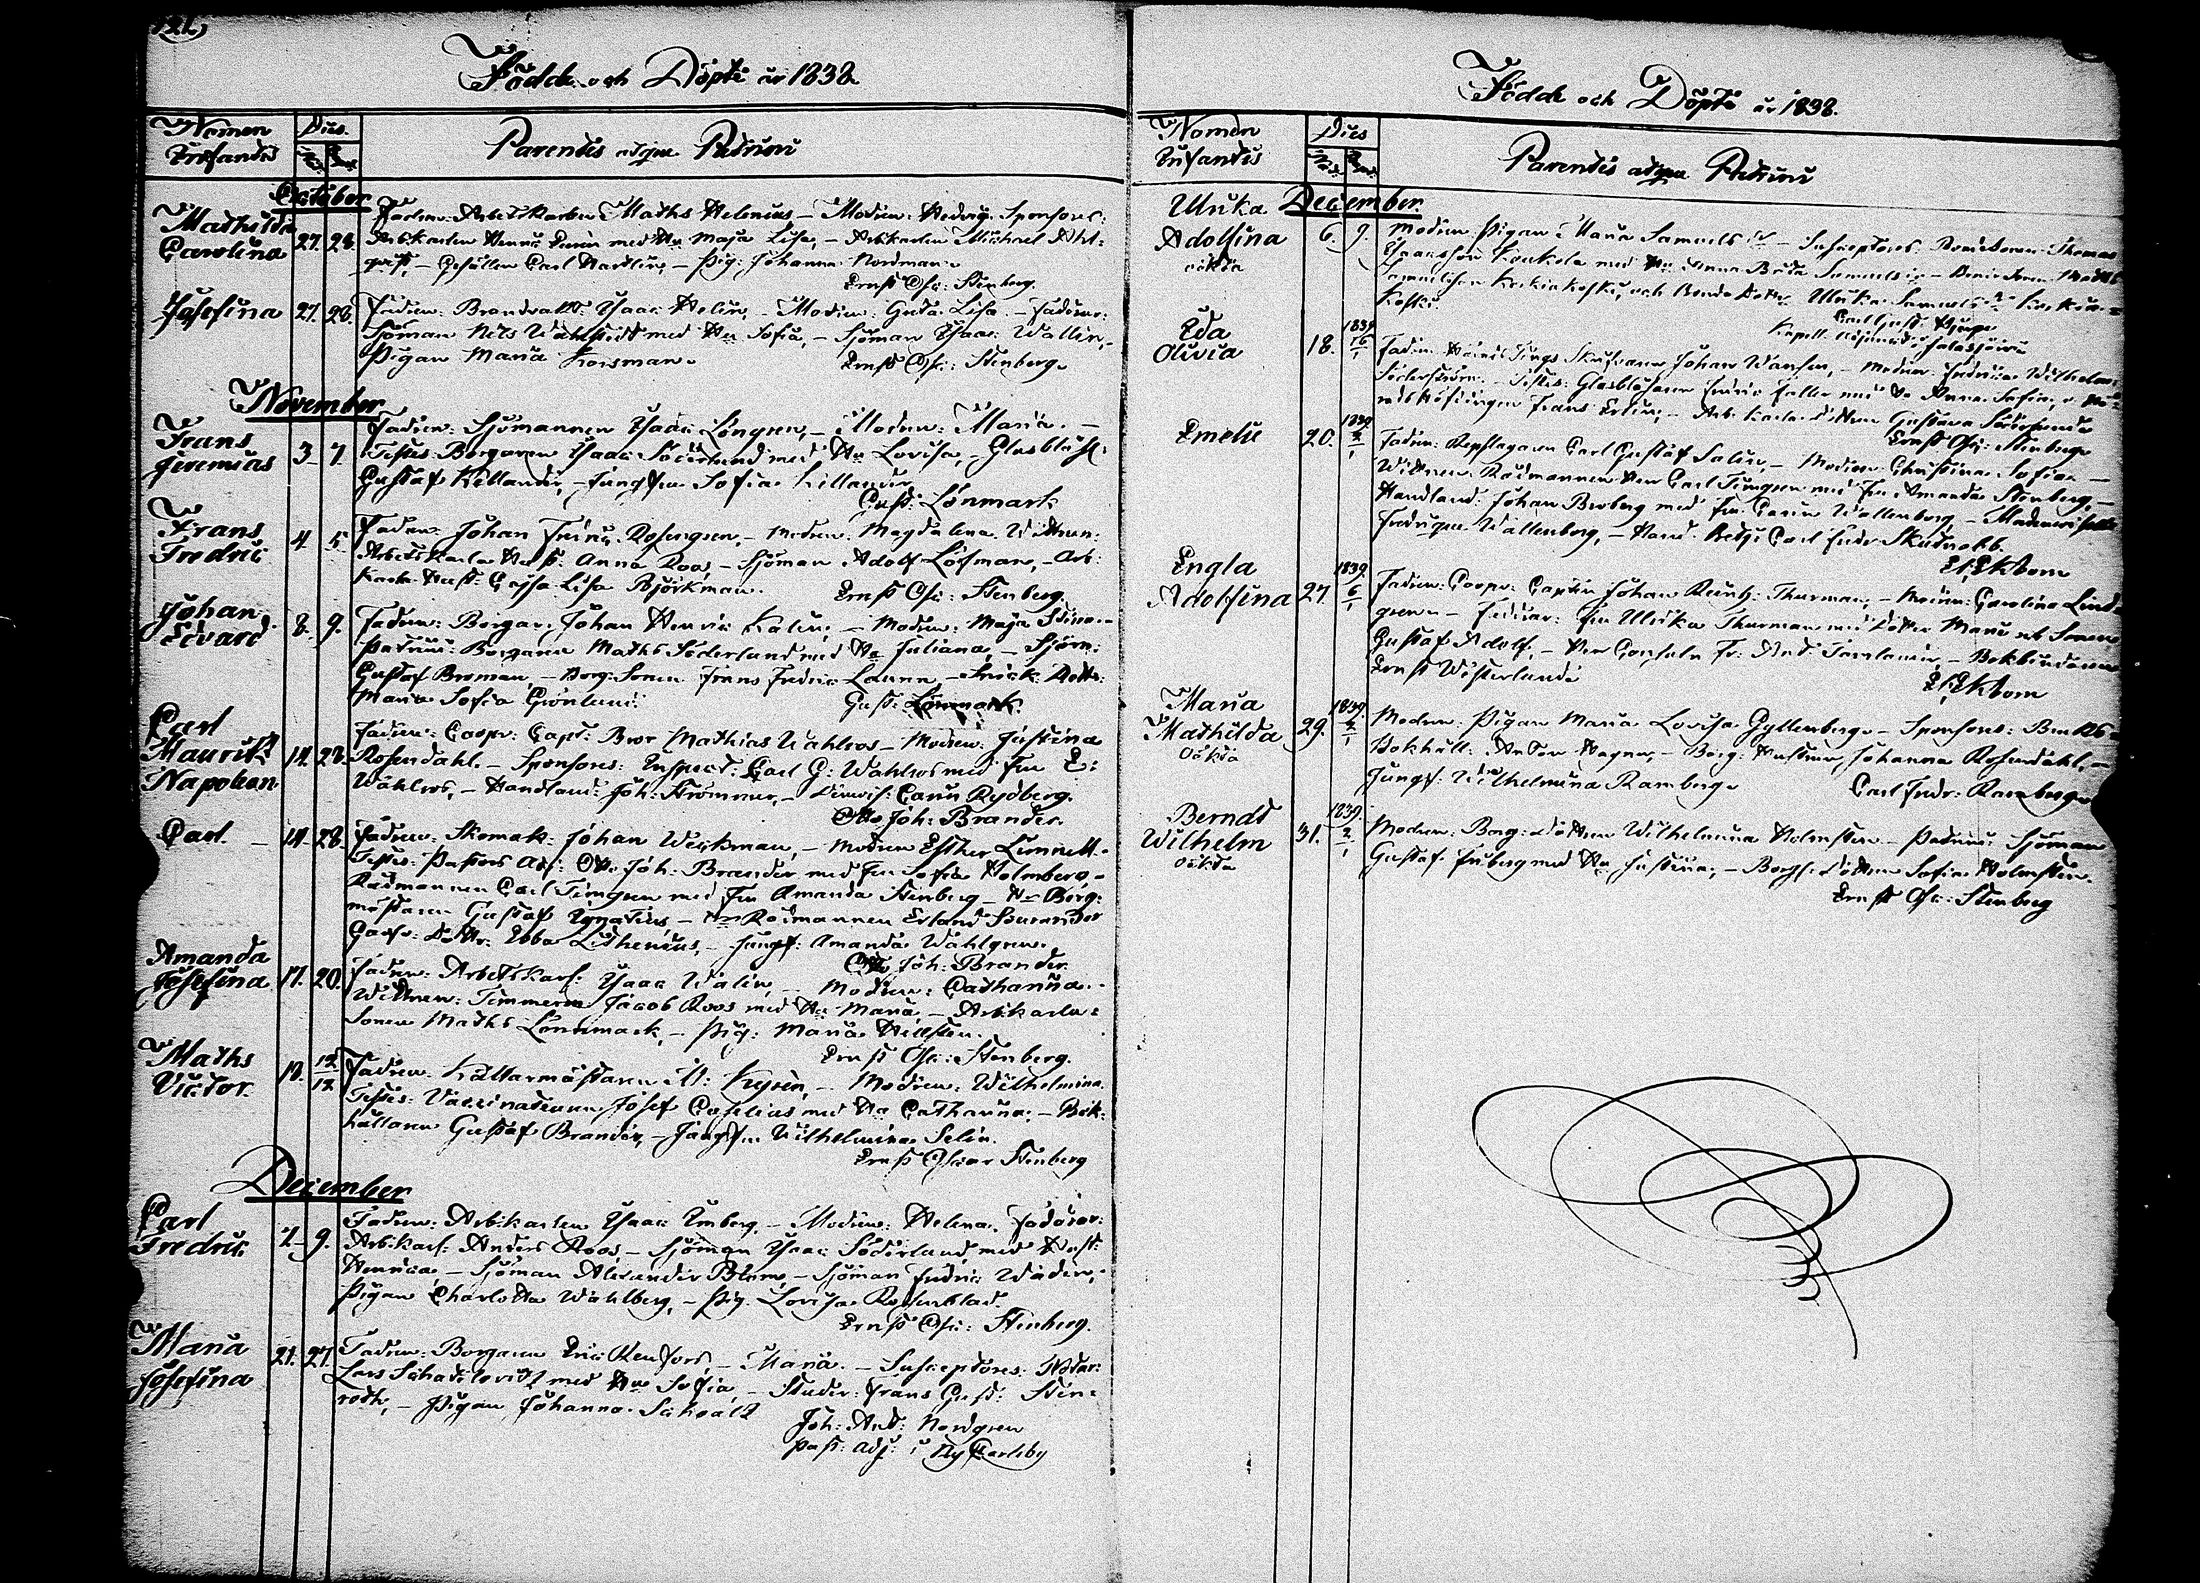 Födde och Döpte år 1838.
Nomen Infantis
Dies
Parentis atque Patrini
October
Mathilda Carolina 27. 28.
Fadren: Arbetskarlen Maths Helenius – Modren: Hedvig. Sponsores:
Arbkarlen med Hu Maja Lisa, – Arbkarlen Michael Ahl-
qvist, – Gesällen Carl Hartlin, – Pig: Johanna Nordman.
Ernst Osc: Stenberg.
Josefina 27. 28.
Fadren: Brandvakt: Isaac Helin, – Modren: Greta Lisa. – Faddrar:
Sjöman Nils Wahlstedt med Hu Sofia, – Sjöman Isaac Wallin, –
Pigan Maria Korsman.
Ernst Osc: Stenberg.
November
Frans Jeremias 3. 7.
Fadren: Sjömannen Isaac Löngren, – Modren: Maria. –
Testes: Borgaren Isaac Söderlund med Hu Lovisa, – Glasblås:
Gustaf Killander, – Jungfru Sofia Killander
Gust: Lönmark
Frans Fredric 4. 5.
Fadren: Johan Fredric Rosengren, – Modren: Magdalena. Wittnen:
Arbetskarls Hust: Anna Roos, – Sjöman Adolf Löfman, – Arb:
Karls Hust: Cajsa Lisa Björkman.
Ernst Osc: Stenberg.
Johan Edvard 8. 9.
Fadren: Borgar: Johan Henric Kalin, – Modren: Maja Stina. –
Patrini: Borgaren Maths Söderlund med Hu Juliana, – Sjöm:
Gustaf Broman, – Borg: Sonen Frans Fredric – Snick: Dottr:
Maria Sofia Grönlund.
Gust: Lönmark.
Carl Mauritz Napoleon 14. 28.
Fadren: Coopv: Capt: Bror Mathias Wahlroos – Modren: Justina
Rosendahl. – Sponsores: Inspect: Carl G: Wahlroos med Fru E:
Wahlroos, – Handland: Joh: Strömmer, – Carin Rydberg.
Otto Joh: Brander.
Carl – 14. 28.
Fadren: Skomak: Johan Weckman, – Modren Esther Limnell. –
Testes: Pastors Adj: Otto Joh: Brander med Fru Sofia Holmberg, –
Rådmannen Carl Timgren med Fru Amanda Stenberg – Hr Borg:
mästaren Gustaf Ignatius, – Hr Rådmannen Erland Sourander
Dottr: Ebba Lithenius, – Jungf: Amanda Wahlgren.
Otto Joh: Brander.
Amanda Josefina 17. 20.
Fadren: Arbetskarl: Isaac Walin, – Modren: Catharina. –
Wittnen: Timmerm: Jacob Roos med Hu Maria, – Arbkarls:
Sonen Maths Lönnmark, – Pig: Maria Hellsten.
Ernst Osc: Stenberg.
Maths Victor 18. 12/12
Fadren: Källarmästaren M: Kyrén, – Modren: Wilhelmina.
Testes: Vaccinateuren Josef Caselius med Hu Catharina, – Bok:
hållaren Gustaf Brander, – Jungfru Wilhelmina Selin.
Ernst Oscar Stenberg
December
Carl Fredric 7. 9.
Fadren: Arbkarlen Isaac Enberg, – Modren: Helena. Faddrar:
Arbkarl: Anders Roos, – Sjöman Isaac Söderlund, med Hust:
Henrica – Sjöman Alexander Blom, – Sjöman Fredric Wadén, –
Pigan Charlotta Wahlberg, – Pig. Lovisa Rosenblad.
Ernst Osc: Stenberg.
Maria Josefina 21. 27.
Fadren: Borgaren Eric Renfors, – Maria. – Susceptores: Notar:
Lars Schadelovitz med Hu Sofia, – Studer: Frans Gust: Sten-
roth, – Pigan Johanna Schvalz
Joh: And: Nordgren
Past: adj: i Ny Carleby
Födde och Döpte år 1838.
Nomen Infantis
Dies
Parentis atque Patrini
December.
Ulrika Adolfina oäkta 6. 9.
Modren: Pigan Maria Samuels dr – Susceptores: Bondesonen Thomas
Isaacsson Konkola med Hu Anna Brita Samuels dr – Bondesonen Matts
och Bonde Dottr Ulrika Samuels dr
Koski.
Carl Gust: Hjerpe
Kapell: Adjunct i Salasjärvi
Ida Olivia 18. 1839 16/1
Fadren: Härads Tings Skrifvaren Johan Wansén, – Modren: Fredrica Wilhelmina
Söderström. – Testes: Glasblåsaren Fredric Faller med Hu Anna Sofia,
Frans Erlin, – Arb: karls dottren Gustava Söderlund
Ernst Osc: Stenberg
Emelie 20. 1839 2/1
Fadren: Repslagaren Carl Gustaf Salin, – Modren: Christina Sofia. –
Wittnen: Rådmannen Herr Carl Timgren med Fru Amanda Stenberg, –
Handland: Johan Broberg med Fru Carin Wallenberg, – Mademoiselle
Fredrique Wallenberg, – Hand: Betj: Carl Fredr: Skutnabb.
E: Ekbom
Engla Adolfina 27. 1839 6/1
Fadren: Coopv: Captein Johan Reinh: Thurman, – Modren: Carolina Lind-
gren – Faddrar: Fru Ullrika Thurman med Dotter Marie och Sonen
Gustaf Adolf, – Herr Consuln Fr: And: – Bokbindaren
Ernst Westerlund
E: Ekbom
Maria Mathilda oäkta 29. 1839. 2/1
Modren: Pigan Maria Lovisa Gyllenberg – Sponsores: Bruks-
Bokhåll: Anton Hagner, – Borg: Hustrun Johanna Rosendahl, –
Jungf: Wilhelmina Ramberg.
Carl Fredr: Ramberg
Berndt Wilhelm oäkta 31. 1839. 2/1
Modren: Borg: Dottren Wilhelmina Holmsten – Patrini: Sjöman
Gustaf Friberg med Hu Justina, – Borgs: Dottren Sofia Holmsten.
Ernst Osc: Stenberg